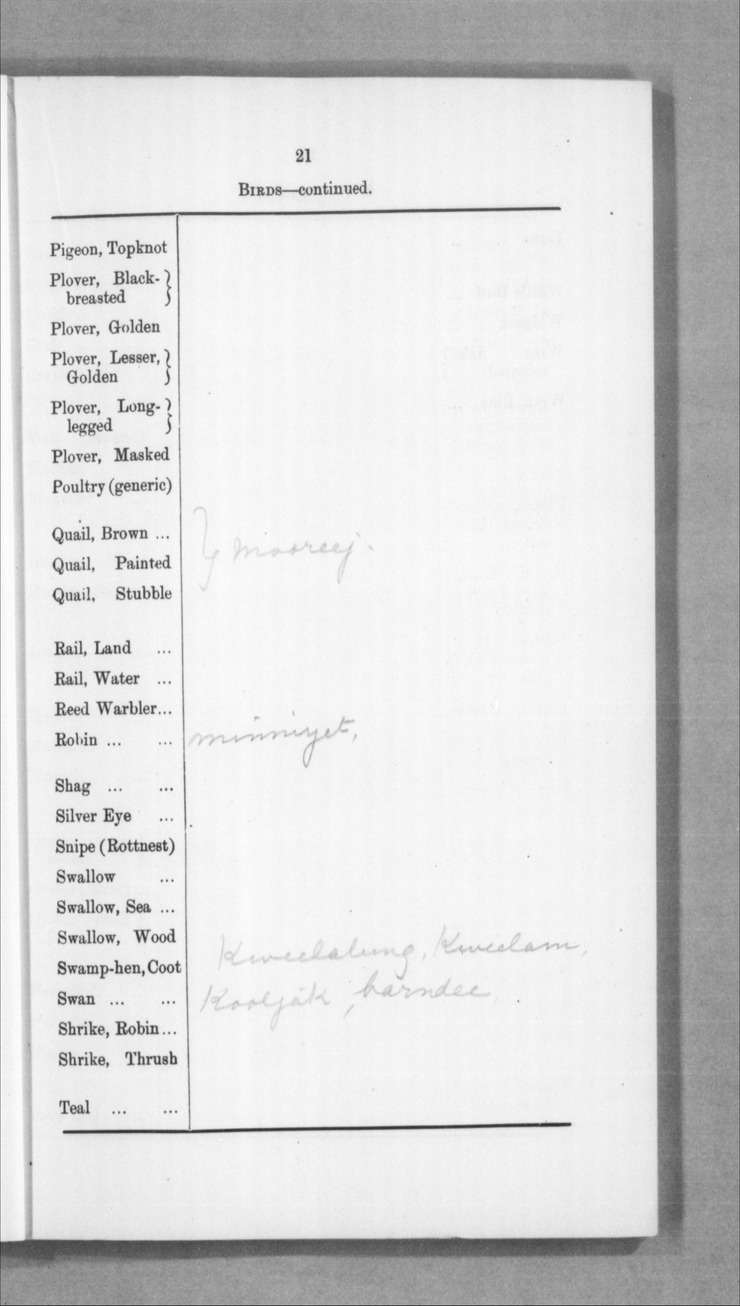 21
BIRDS—continued.
Pigeon, Topknot
Plover, Black-
breasted
Plover, Golden
Plover, Lesser,
Golden
Plover, Long-
legged
Plover, Masked
Poultry (generic)
Quail, Brown ...
Quail, Painted
Quail, Stubble
} mooreej.
Rail, Land ...
Rail, Water ...
Reed Warbler...
Robin ... ... minniyet,
Shag ... ...
Silver Eye ...
Snipe (Rottnest)
Swallow ...
Swallow, Sea ...
Swallow, Wood
Swamp-hen, Coot Kweelalung, Kweelam,
Swan ... ... Kooljăk, barndee
Shrike, Robin...
Shrike, Thrush
Teal ... ...